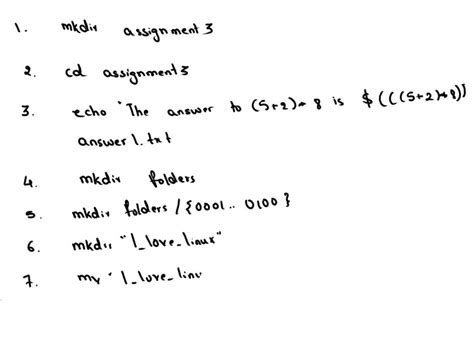 1. mkdir assignment 3
2. cd assignment3
3. echo "The answer to (5+2)* 8 is $(((5+2)*8))
answer1.txt
4. mkdir folders
5. mkdir folders/{0001..0100}
6. mkdir "I_love_linux"
7. mv "I_love_linu